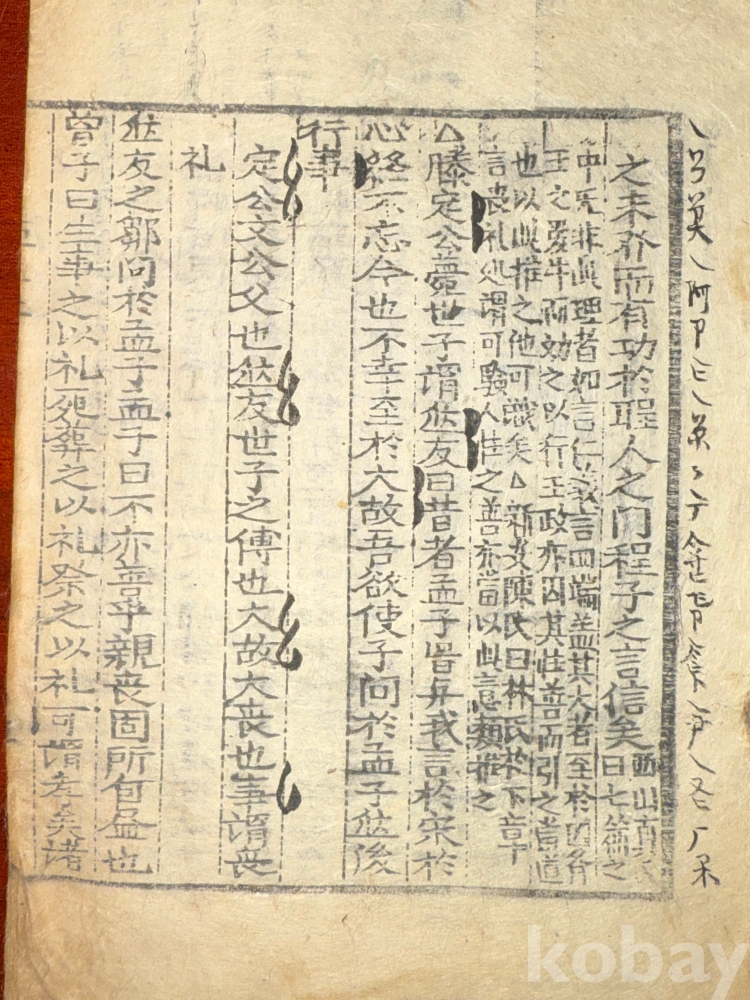 之未發而有功於聖人之門程子之言信矣西山真氏
曰七篇之
中无非此理者如言仁義言四端盖其大者至於因齊
王之愛牛而効之以行王政亦因其性善而引之當道
也以此推之他可識矣△新安陳氏曰林氏於下章下
言喪礼処謂可驗人性之善亦當以此意類推之
△滕定公薨世子謂然友曰昔者孟子甞与我言於宋於
心終不忘今也不幸至於大故吾欲使子問於孟子然後
行事
定公文公父也然友世子之傅也大故大喪也事謂喪
礼
然友之鄒問於孟子孟子曰不亦善乎親喪固所自盡也
曾子曰生事之以礼死葬之以礼祭之以礼可謂孝矣諸
kobay